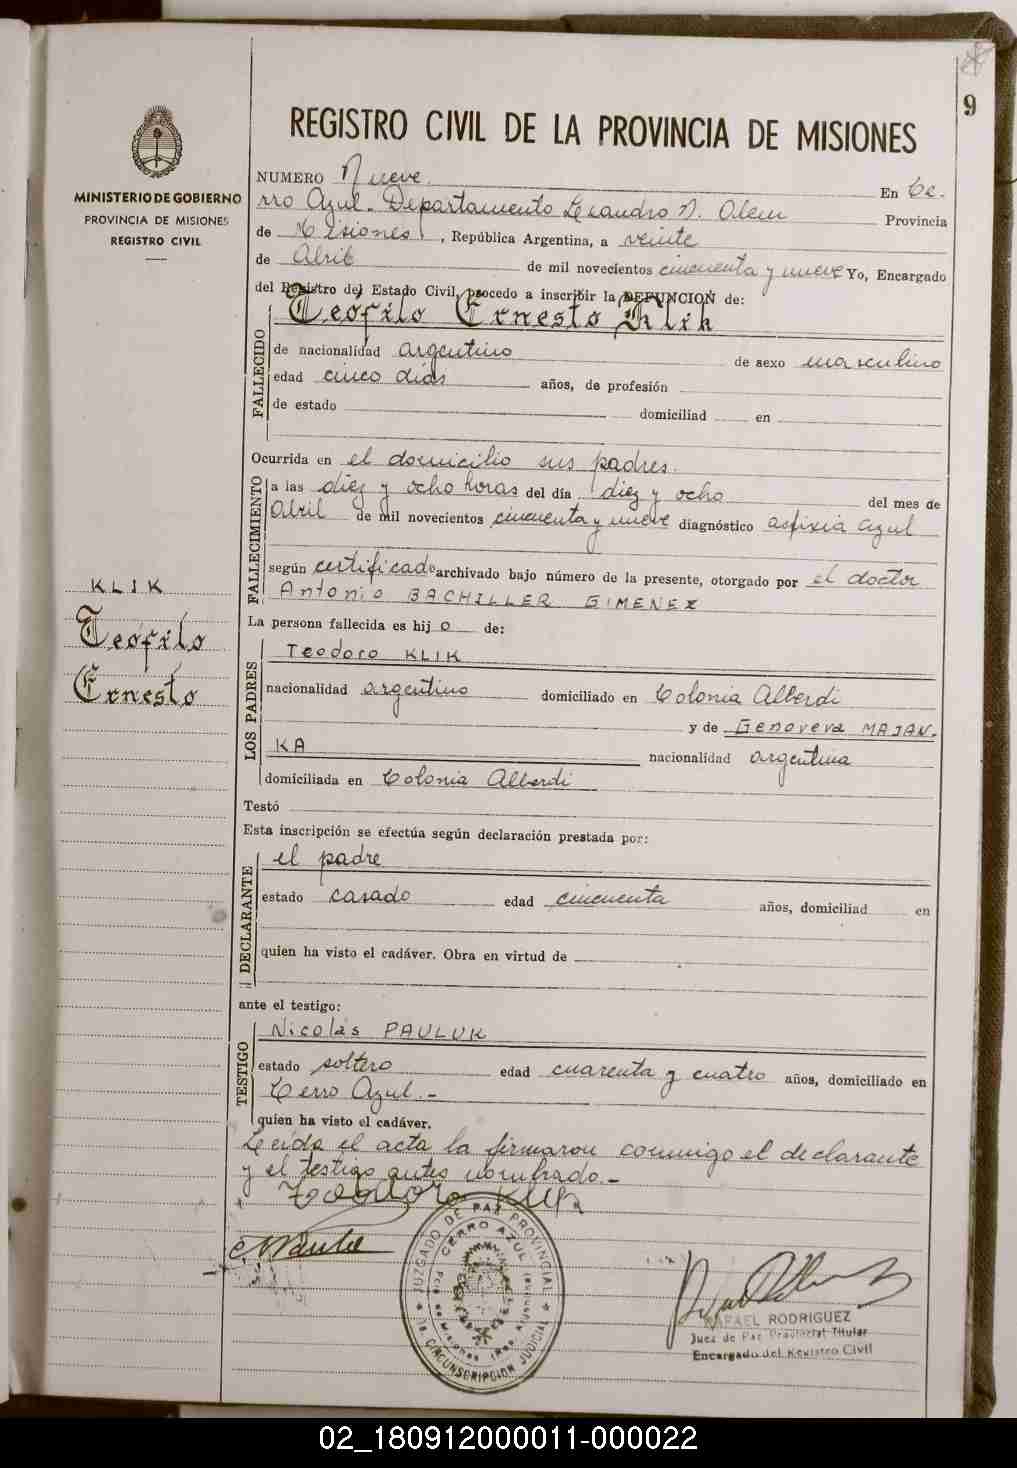 9
REGISTRO CIVIL DE LA PROVINCIA DE MISIONES
MINISTERIO DE GOBIERNO
PROVINCIA DE MISIONES
REGISTRO CIVIL
NUMERO Nueve. En Ce-
rro Azul. Departamento Leandro N. Alem Provincia
de Misiones, República Argentina, a veinte
de Abril de mil novecientos cincuenta y nueve Yo, Encargado
del Registro del Estado Civil, procedo a inscribir la DEFUNCION de:
Teófilo Ernesto Klik
FALLECIDO
de nacionalidad argentino de sexo masculino
edad cinco días años, de profesión
de estado domiciliad en
Ocurrida en el domicilio sus padres.
FALLECIMIENTO
a las diez y ocho horas del día diez y ocho del mes de
Abril de mil novecientos cincuenta y nueve diagnóstico asfixia azul
según certificado archivado bajo número de la presente, otorgado por el doctor
Antonio BACHILLER GIMENEZ
KLIK
Teófilo
Ernesto
La persona fallecida es hijo de:
LOS PADRES
Teodoro KLIK
nacionalidad argentino domiciliado en Colonia Alberdi
y de Genoveva MAJAN-
KA nacionalidad argentina
domiciliada en Colonia Alberdi
Testó
Esta inscripción se efectúa según declaración prestada por:
DECLARANTE
el padre
estado casado edad cincuenta años, domiciliad en
quien ha visto el cadáver. Obra en virtud de
ante el testigo:
TESTIGO
Nicolás PAULUK
estado soltero edad cuarenta y cuatro años, domiciliado en
Cerro Azul.-
quien ha visto el cadáver.
Leída el acta la firmaron conmigo el declarante
y el testigo antes nombrado.-
Teodoro Klik
JUZGADO DE PAZ PROVINCIAL
CERRO AZUL
CIRCUNSCRIPCION JUDICIAL
RAFAEL RODRIGUEZ
Juez de Paz Provincial Titular
Encargado del Registro Civil
02_180912000011-000022